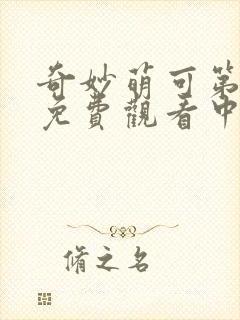 奇妙萌可第
免費觀看中
脩之名